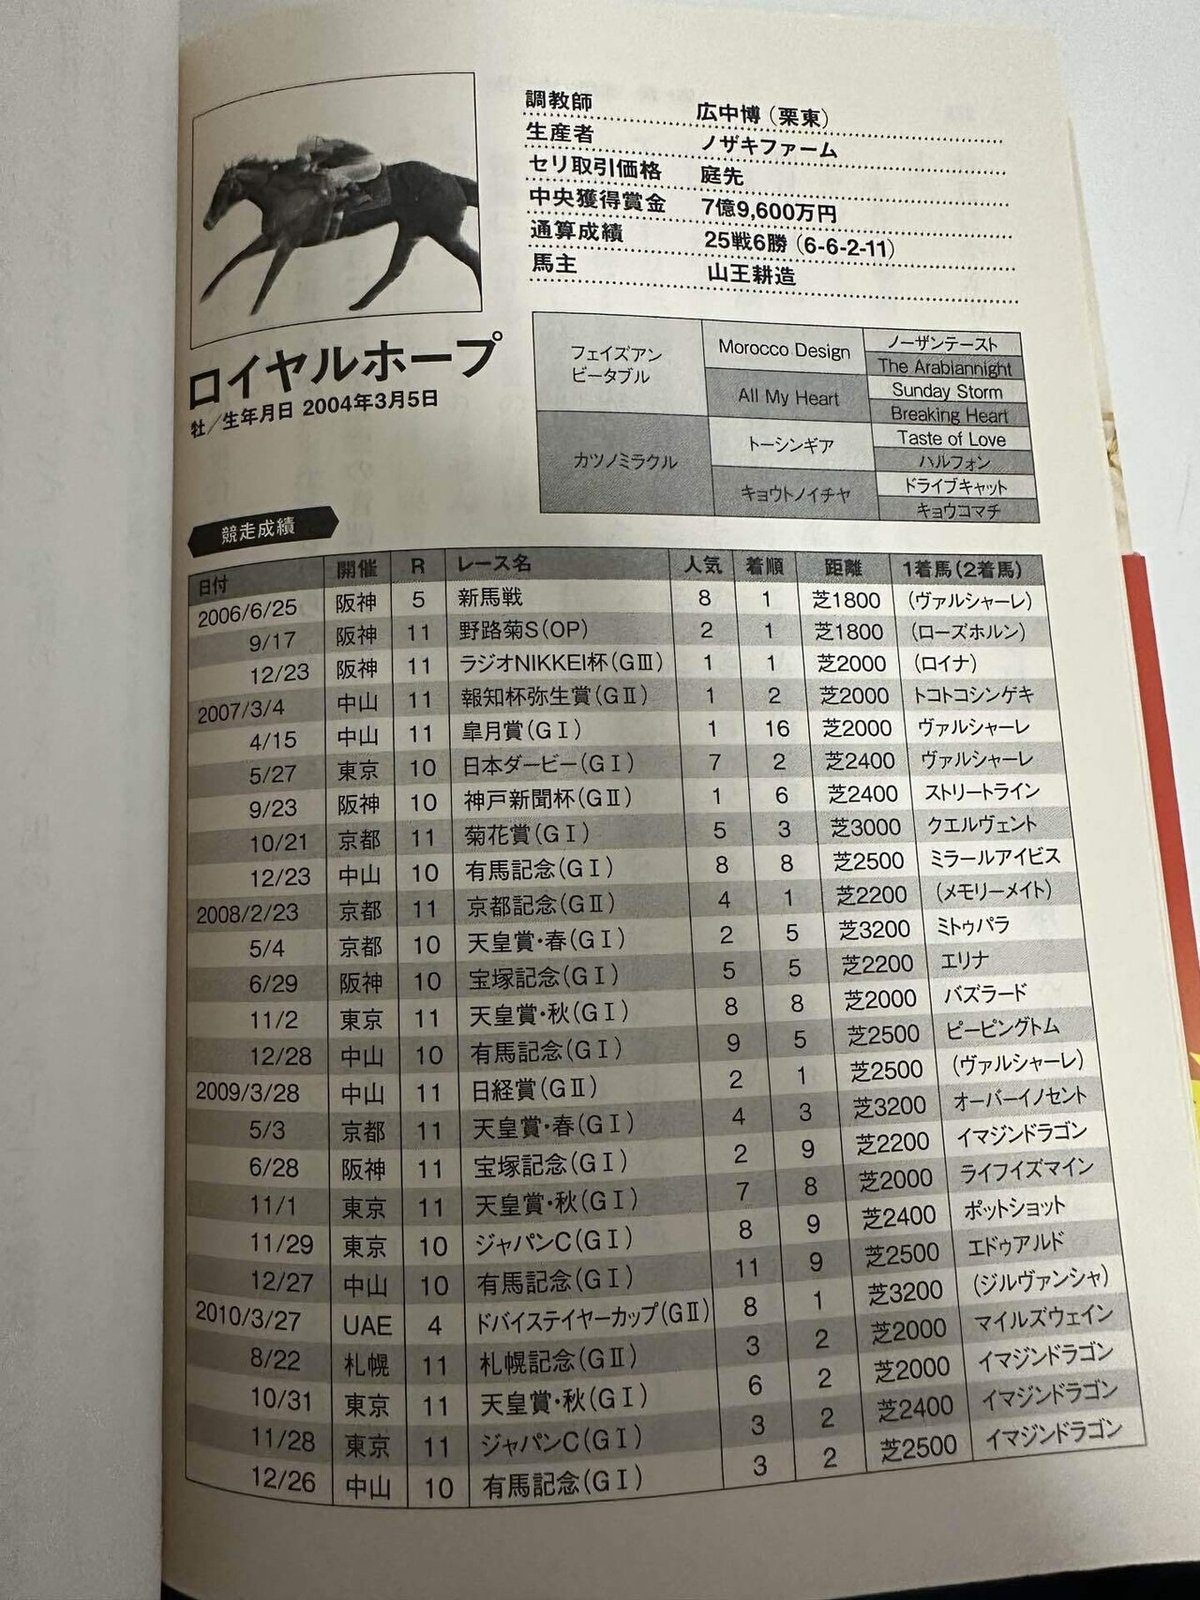 調教師 広中博（栗東）
生産者 ノザキファーム
セリ取引価格 庭先
中央獲得賞金 7億9,600万円
通算成績 25戦6勝（6-6-2-11）
馬主 山王耕造
ロイヤルホープ
牡／生年月日 2004年3月5日
フェイズアンビータブル
Morocco Design
ノーザンテースト
The Arabiannight
All My Heart
Sunday Storm
Breaking Heart
カツノミラクル
トーシンギア
Taste of Love
ハルフォン
キョウトノイチヤ
ドライブキャット
キョウコマチ
競走成績
日付 開催 R レース名 人気 着順 距離 1着馬（2着馬）
2006/6/25 阪神 5 新馬戦 8 1 芝1800 （ヴァルシャーレ）
9/17 阪神 11 野路菊S（OP） 2 1 芝1800 （ローズホルン）
12/23 阪神 11 ラジオNIKKEI杯（GⅢ） 1 1 芝2000 （ロイナ）
2007/3/4 中山 11 報知杯弥生賞（GⅡ） 1 2 芝2000 トコトコシンゲキ
4/15 中山 11 皐月賞（GⅠ） 1 16 芝2000 ヴァルシャーレ
5/27 東京 10 日本ダービー（GⅠ） 7 2 芝2400 ヴァルシャーレ
9/23 阪神 10 神戸新聞杯（GⅡ） 1 6 芝2400 ストリートライン
10/21 京都 11 菊花賞（GⅠ） 5 3 芝3000 クエルヴェント
12/23 中山 10 有馬記念（GⅠ） 8 8 芝2500 ミラールアイビス
2008/2/23 京都 11 京都記念（GⅡ） 4 1 芝2200 （メモリーメイト）
5/4 京都 10 天皇賞・春（GⅠ） 2 5 芝3200 ミトゥパラ
6/29 阪神 10 宝塚記念（GⅠ） 5 5 芝2200 エリナ
11/2 東京 11 天皇賞・秋（GⅠ） 8 8 芝2000 バズラード
12/28 中山 10 有馬記念（GⅠ） 9 5 芝2500 ピーピングトム
2009/3/28 中山 11 日経賞（GⅡ） 2 1 芝2500 （ヴァルシャーレ）
5/3 京都 11 天皇賞・春（GⅠ） 4 3 芝3200 オーバーイノセント
6/28 阪神 11 宝塚記念（GⅠ） 2 9 芝2200 イマジンドラゴン
11/1 東京 11 天皇賞・秋（GⅠ） 7 8 芝2000 ライフイズマイン
11/29 東京 10 ジャパンC（GⅠ） 8 9 芝2400 ポットショット
12/27 中山 10 有馬記念（GⅠ） 11 9 芝2500 エドゥアルド
2010/3/27 UAE 4 ドバイステイヤーカップ（GⅡ） 8 1 芝3200 （ジルヴァンシャ）
8/22 札幌 11 札幌記念（GⅡ） 3 2 芝2000 マイルズウェイン
10/31 東京 11 天皇賞・秋（GⅠ） 6 2 芝2000 イマジンドラゴン
11/28 東京 11 ジャパンC（GⅠ） 3 2 芝2400 イマジンドラゴン
12/26 中山 10 有馬記念（GⅠ） 3 2 芝2500 イマジンドラゴン